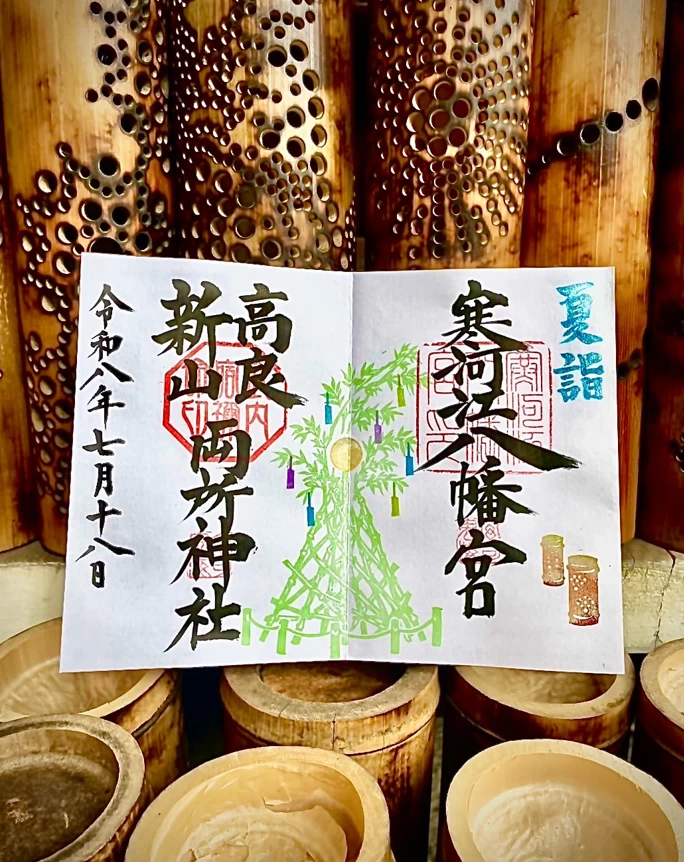 夏詣
寒河江八幡宮
高良
新山
両所神社
令和八年七月十八日